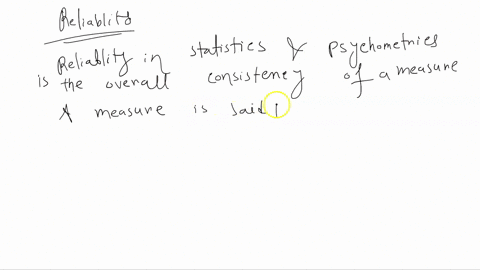 Reliablity
Reliablity in statistics & psychometrics
is the overall consistency of a measure
A measure is said